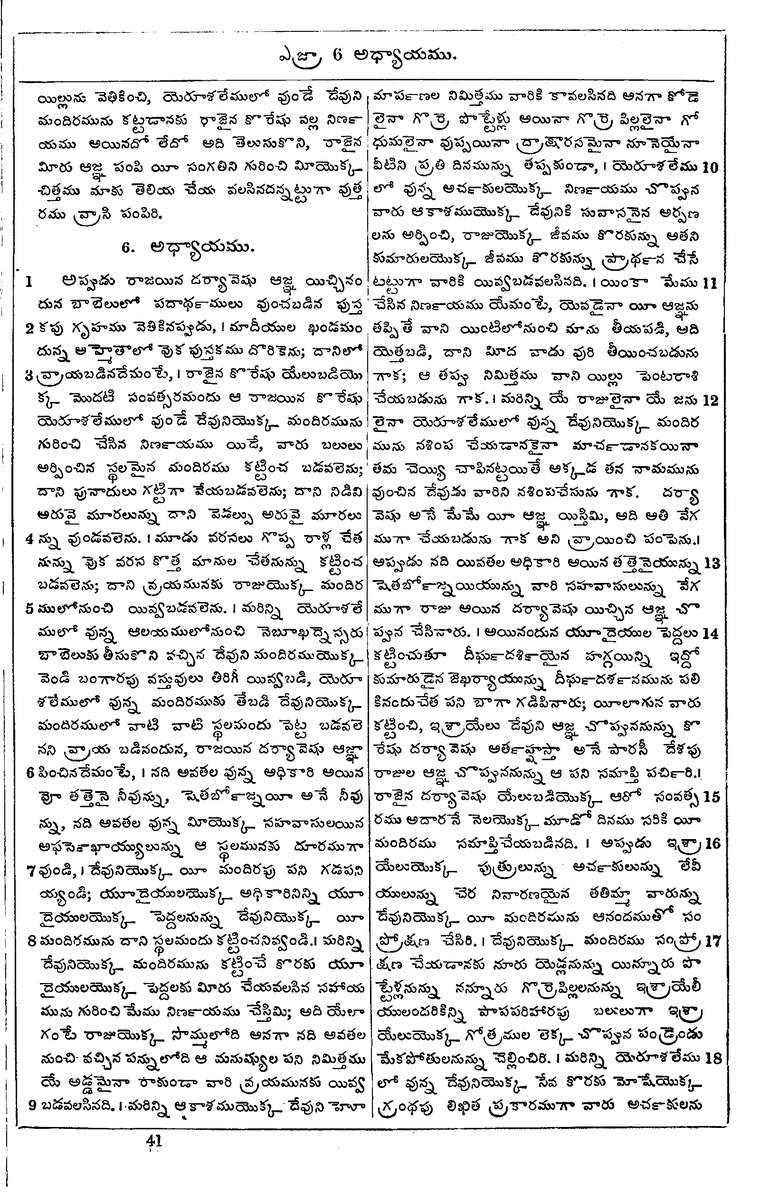 ఎజ్రా 6 అధ్యాయము.
యిల్లును వెతికించి, యెరూశలేములో వుండే దేవుని
మందిరమును కట్టడానకు రాజైన కొరేషు వల్ల నిర్ణ
యము అయినదో లేదో అది తెలుసుకొని, రాజైన
మీరు ఆజ్ఞ పంపి యీ సంగతిని గురించి మీయొక్క
చిత్తము మాకు తెలియ చేయ వలసినదన్నట్టుగా వుత్త
రము వ్రాసి పంపిరి.
6. అధ్యాయము.
1 అప్పుడు రాజయిన దర్యావెషు ఆజ్ఞ యిచ్చినం
దున బాబెలులో పదార్థములు వుంచబడిన పుస్త
2 కపు గృహము వెతికినప్పుడు, । మాదీయుల ఖండమం
దున్న ఆహ్మెతాలో వుక పుస్తకము దొరికెను; దానిలో
3 వ్రాయబడినదేమంటే, । రాజైన కొరేషు యేలుబడియొ
క్క మొదటి సంవత్సరమందు ఆ రాజయిన కొరేషు
యెరూశలేములో వుండే దేవునియొక్క మందిరమును
గురించి చేసిన నిర్ణయము యిదే, వారు బలులు
అర్పించిన స్థలమైన మందిరము కట్టించ బడవలెను;
దాని పునాదులు గట్టిగా వేయబడవలెను; దాని నిడివి
అరువై మూరలున్ను దాని వెడల్పు అరువై మూరలు
4 న్ను వుండవలెను. । మూడు వరసలు గొప్ప రాళ్ల చేత
నున్ను వుక వరస కొత్త మానుల చేతనున్ను కట్టించ
బడవలెను; దాని వ్రయమునకు రాజుయొక్క మందిర
5 ములోనుంచి యివ్వబడవలెను. । మరిన్ని యెరూశలే
ములో వున్న ఆలయములోనుంచి నెబూఖద్నెస్సరు
బాబెలుకు తీసుకొని వచ్చిన దేవుని మందిరముయొక్క
వెండి బంగారపు వస్తువులు తిరిగీ యివ్వబడి, యెరూ
శలేములో వున్న మందిరముకు తేబడి దేవునియొక్క
మందిరములో వాటి వాటి స్థలమందు పెట్ట బడవలె
నని వ్రాయ బడినందున, రాజయిన దర్యావెషు ఆజ్ఞా
6 పించినదేమంటే, । నది అవతల వున్న అధికారి అయిన
వో తత్తెనై నీవున్ను, షెతబోర్జ్నయీ అనే నీవు
న్ను, నది అవతల వున్న మీయొక్క సహవాసులయిన
అఫర్సెఖాయ్యులున్ను ఆ స్థలమునకు దూరముగా
7 వుండి, । దేవునియొక్క యీ మందిరపు పని గడపని
య్యండి; యూదైయులయొక్క అధికారినిన్ని యూ
దైయులయొక్క పెద్దలనున్ను దేవునియొక్క యీ
8 మందిరమును దాని స్థలమందు కట్టించనివ్వండి. । మరిన్ని
దేవునియొక్క మందిరమును కట్టించే కొరకు యూ
దైయులయొక్క పెద్దలకు మీరు చేయవలసిన సహాయ
మును గురించి మేము నిర్ణయము చేస్తిమి; అది యేలా
గంటే రాజుయొక్క సొమ్ములోది అనగా నది అవతల
నుంచి వచ్చిన పన్నులోది ఆ మనుష్యుల పని నిమిత్తము
యే అడ్డమైనా రాకుండా వారి వ్రయమునకు యివ్వ
9 బడవలసినది. । మరిన్ని ఆకాశముయొక్క దేవుని హో
మార్పణల నిమిత్తము వారికి కావలసినది అనగా కోడె
లైనా గొర్రె పొట్టేళ్లు అయినా గొర్రె పిల్లలైనా గో
ధుమలైనా వుప్పయినా ద్రాక్షారసమైనా నూనెయైనా
వీటిని ప్రతి దినమున్ను తప్పకుండా, । యెరూశలేము 10
లో వున్న అర్చకులయొక్క నిర్ణయము చొప్పున
వారు ఆకాశముయొక్క దేవునికి సువాసనైన అర్పణ
లను అర్పించి, రాజుయొక్క జీవము కొరకున్ను అతని
కుమారులయొక్క జీవము కొరకున్ను ప్రార్థన చేసే
టట్టుగా వారికి యివ్వబడవలసినది. । యింకా మేము 11
చేసిన నిర్ణయము యేమంటే, యెవడైనా యీ ఆజ్ఞను
తప్పితే వాని యింటిలోనుంచి మాను తీయపడి, అది
యెత్తబడి, దాని మీద వాడు వురి తీయించబడును
గాక; ఆ తప్పు నిమిత్తము వాని యిల్లు పెంటరాశి
చేయబడును గాక. । మరిన్ని యే రాజులైనా యే జను 12
లైనా యెరూశలేములో వున్న దేవునియొక్క మందిర
మును నశింప చేయడానకైనా మార్చడానకయినా
తమ చెయ్యి చాపినట్టయితే అక్కడ తన నామమును
వుంచిన దేవుడు వారిని నశింపచేసును గాక. దర్యా
వెషు అనే మేమే యీ ఆజ్ఞ యిస్తిమి, అది అతి వేగ
ముగా చేయబడును గాక అని వ్రాయించి పంపెను. ।
అప్పుడు నది యివతల అధికారి అయిన తత్తెనైయున్ను 13
షెతబోర్జ్నయియున్ను వారి సహవాసులున్ను వేగ
ముగా రాజు అయిన దర్యావెషు యిచ్చిన ఆజ్ఞ చొ
ప్పున చేసినారు. । అయినందున యూదైయుల పెద్దలు 14
కట్టించుతూ దీర్ఘదర్శియైన హగ్గయిన్ని ఇద్దో
కుమారుడైన జెఖర్యాయున్ను దీర్ఘదర్శనమును పలి
కినందుచేత పని బాగా గడిపినారు; యీలాగున వారు
కట్టించి, ఇశ్రాయేలు దేవుని ఆజ్ఞ చొప్పుననున్ను కొ
రేషు దర్యావెషు అర్తహ్షస్తా అనే పారసీ దేశపు
రాజుల ఆజ్ఞ చొప్పుననున్ను ఆ పని సమాప్తి పర్చిరి. ।
రాజైన దర్యావెషు యేలుబడియొక్క ఆరో సంవత్స 15
రము అదారనే నెలయొక్క మూడో దినము సరికి యీ
మందిరము సమాప్తిచేయబడినది. । అప్పుడు ఇశ్రా 16
యేలుయొక్క పుత్రులున్ను అర్చకులున్ను లేవీ
యులున్ను చెర నివారణయైన తతిమ్మా వారున్ను
దేవునియొక్క యీ మందిరమును ఆనందముతో సం
ప్రోక్షణ చేసిరి. । దేవునియొక్క మందిరము సంప్రో 17
క్షణ చేయడానకు నూరు యెడ్లనున్ను యిన్నూరు పొ
ట్టేళ్లనున్ను నన్నూరు గొర్రెపిల్లలనున్ను ఇశ్రాయేలీ
యులందరికిన్ని పాపపరిహారపు బలులుగా ఇశ్రా
యేలుయొక్క గోత్రముల లెక్క చొప్పున పండ్రెండు
మేకపోతులనున్ను చెల్లించిరి. । మరిన్ని యెరూశలేము 18
లో వున్న దేవునియొక్క సేవ కొరకు మోషేయొక్క
గ్రంథపు లిఖిత ప్రకారముగా వారు అర్చకులను
41